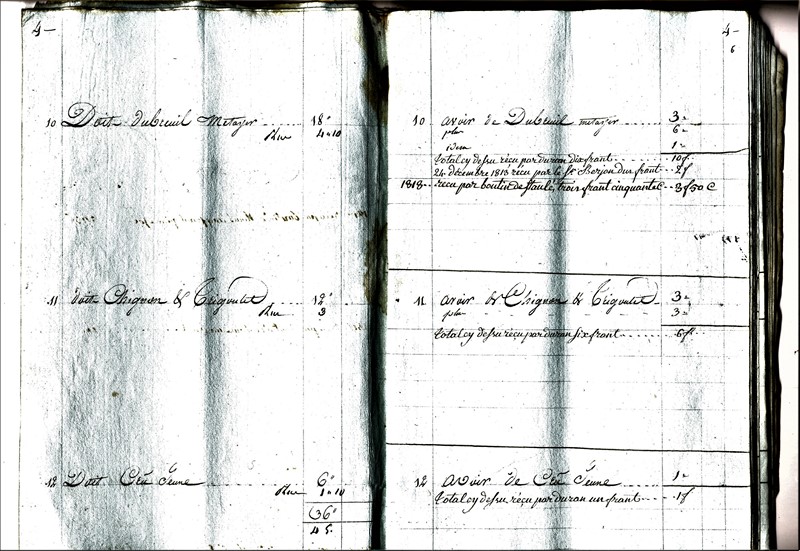 4-
10 Doit dubreuil metayer ...... 18"
Plus 4 10
11 doit Chignon & Trigoulet ...... 12"
Plus 3
12 Doit Cru Jeune ...... 6"
Plus 1 10
36"
45
4-
6
10 avoir de Dubreuil metayer ...... 3"
plus 6"
idem 1"
total cy desu reçu par duran dix frant ...... 10f
24 décembre 1813 reçu par le Sr Berjon dus frant - 2f
1818 - reçu par boutin de Saule, trois frant cinquante - 3f50 C
11 avoir de Chignon & Trigoulet 3"
plus 3"
total cy desu reçu par duran six frant ...... 6f
12 avoir de Cru Jeune ...... 1"
total cy desu reçu par duran un frant ...... 1f